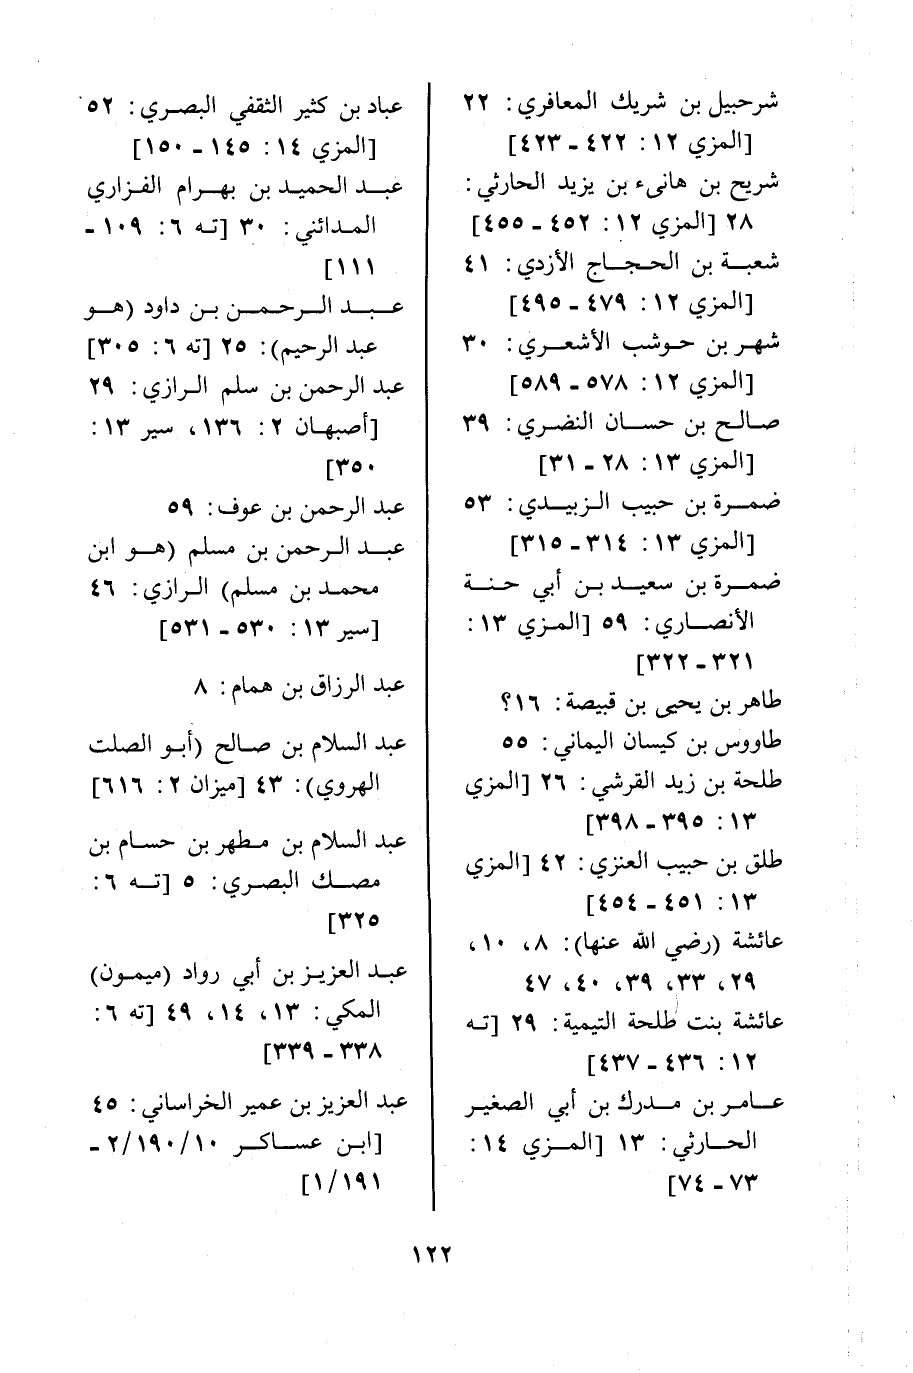 شرحبيل بن شريك المعافري: ٢٢
[المزي ١٢: ٤٢٢ - ٤٢٣]
شريح بن هانىء بن يزيد الحارثي:
٢٨ [المزي ١٢: ٤٥٢ - ٤٥٥]
شعبة بن الحجاج الأزدي: ٤١
[المزي ١٢: ٤٧٩ - ٤٩٥]
شهر بن حوشب الأشعري: ٣٠
[المزي ١٢: ٥٧٨ - ٥٨٩]
صالح بن حسان النضري: ٣٩
[المزي ١٣: ٢٨ - ٣١]
ضمرة بن حبيب الزبيدي: ٥٣
[المزي ١٣: ٣١٤ - ٣١٥]
ضمرة بن سعيد بن أبي حنة
الأنصاري: ٥٩ [المزي ١٣:
٣٢١ - ٣٢٢]
طاهر بن يحيى بن قبيصة: ١٦؟
طاووس بن كيسان اليماني: ٥٥
طلحة بن زيد القرشي: ٢٦ [المزي
١٣: ٣٩٥ - ٣٩٨]
طلق بن حبيب العنزي: ٤٢ [المزي
١٣: ٤٥١ - ٤٥٤]
عائشة (رضي الله عنها): ٨، ١٠،
٢٩، ٣٣، ٣٩، ٤٠، ٤٧
عائشة بنت طلحة التيمية: ٢٩ [تـه
١٢: ٤٣٦ - ٤٣٧]
عامر بن مدرك بن أبي الصغير
الحارثي: ١٣ [المزي ١٤:
٧٣ - ٧٤]
عباد بن كثير الثقفي البصري: ٥٢
[المزي ١٤: ١٤٥ - ١٥٠]
عبد الحميد بن بهرام الفزاري
المدائني: ٣٠ [تـه ٦: ١٠٩ -
١١١]
عبد الرحمن بن داود (هو
عبد الرحيم): ٢٥ [ته ٦: ٣٠٥]
عبد الرحمن بن سلم الرازي: ٢٩
[أصبهان ٢: ١٣٦، سير ١٣:
٣٥٠]
عبد الرحمن بن عوف: ٥٩
عبد الرحمن بن مسلم (هو ابن
محمد بن مسلم) الرازي: ٤٦
[سير ١٣: ٥٣٠ - ٥٣١]
عبد الرزاق بن همام: ٨
عبد السلام بن صالح (أبو الصلت
الهروي): ٤٣ [ميزان ٢: ٦١٦]
عبد السلام بن مطهر بن حسام بن
مصك البصري: ٥ [تـه ٦:
٣٢٥]
عبد العزيز بن أبي رواد (ميمون)
المكي: ١٣، ١٤، ٤٩ [ته ٦:
٣٣٨ - ٣٣٩]
عبد العزيز بن عمير الخراساني: ٤٥
[ابن عساكر ١٠/١٩٠/٢ -
١/١٩١]
١٢٢